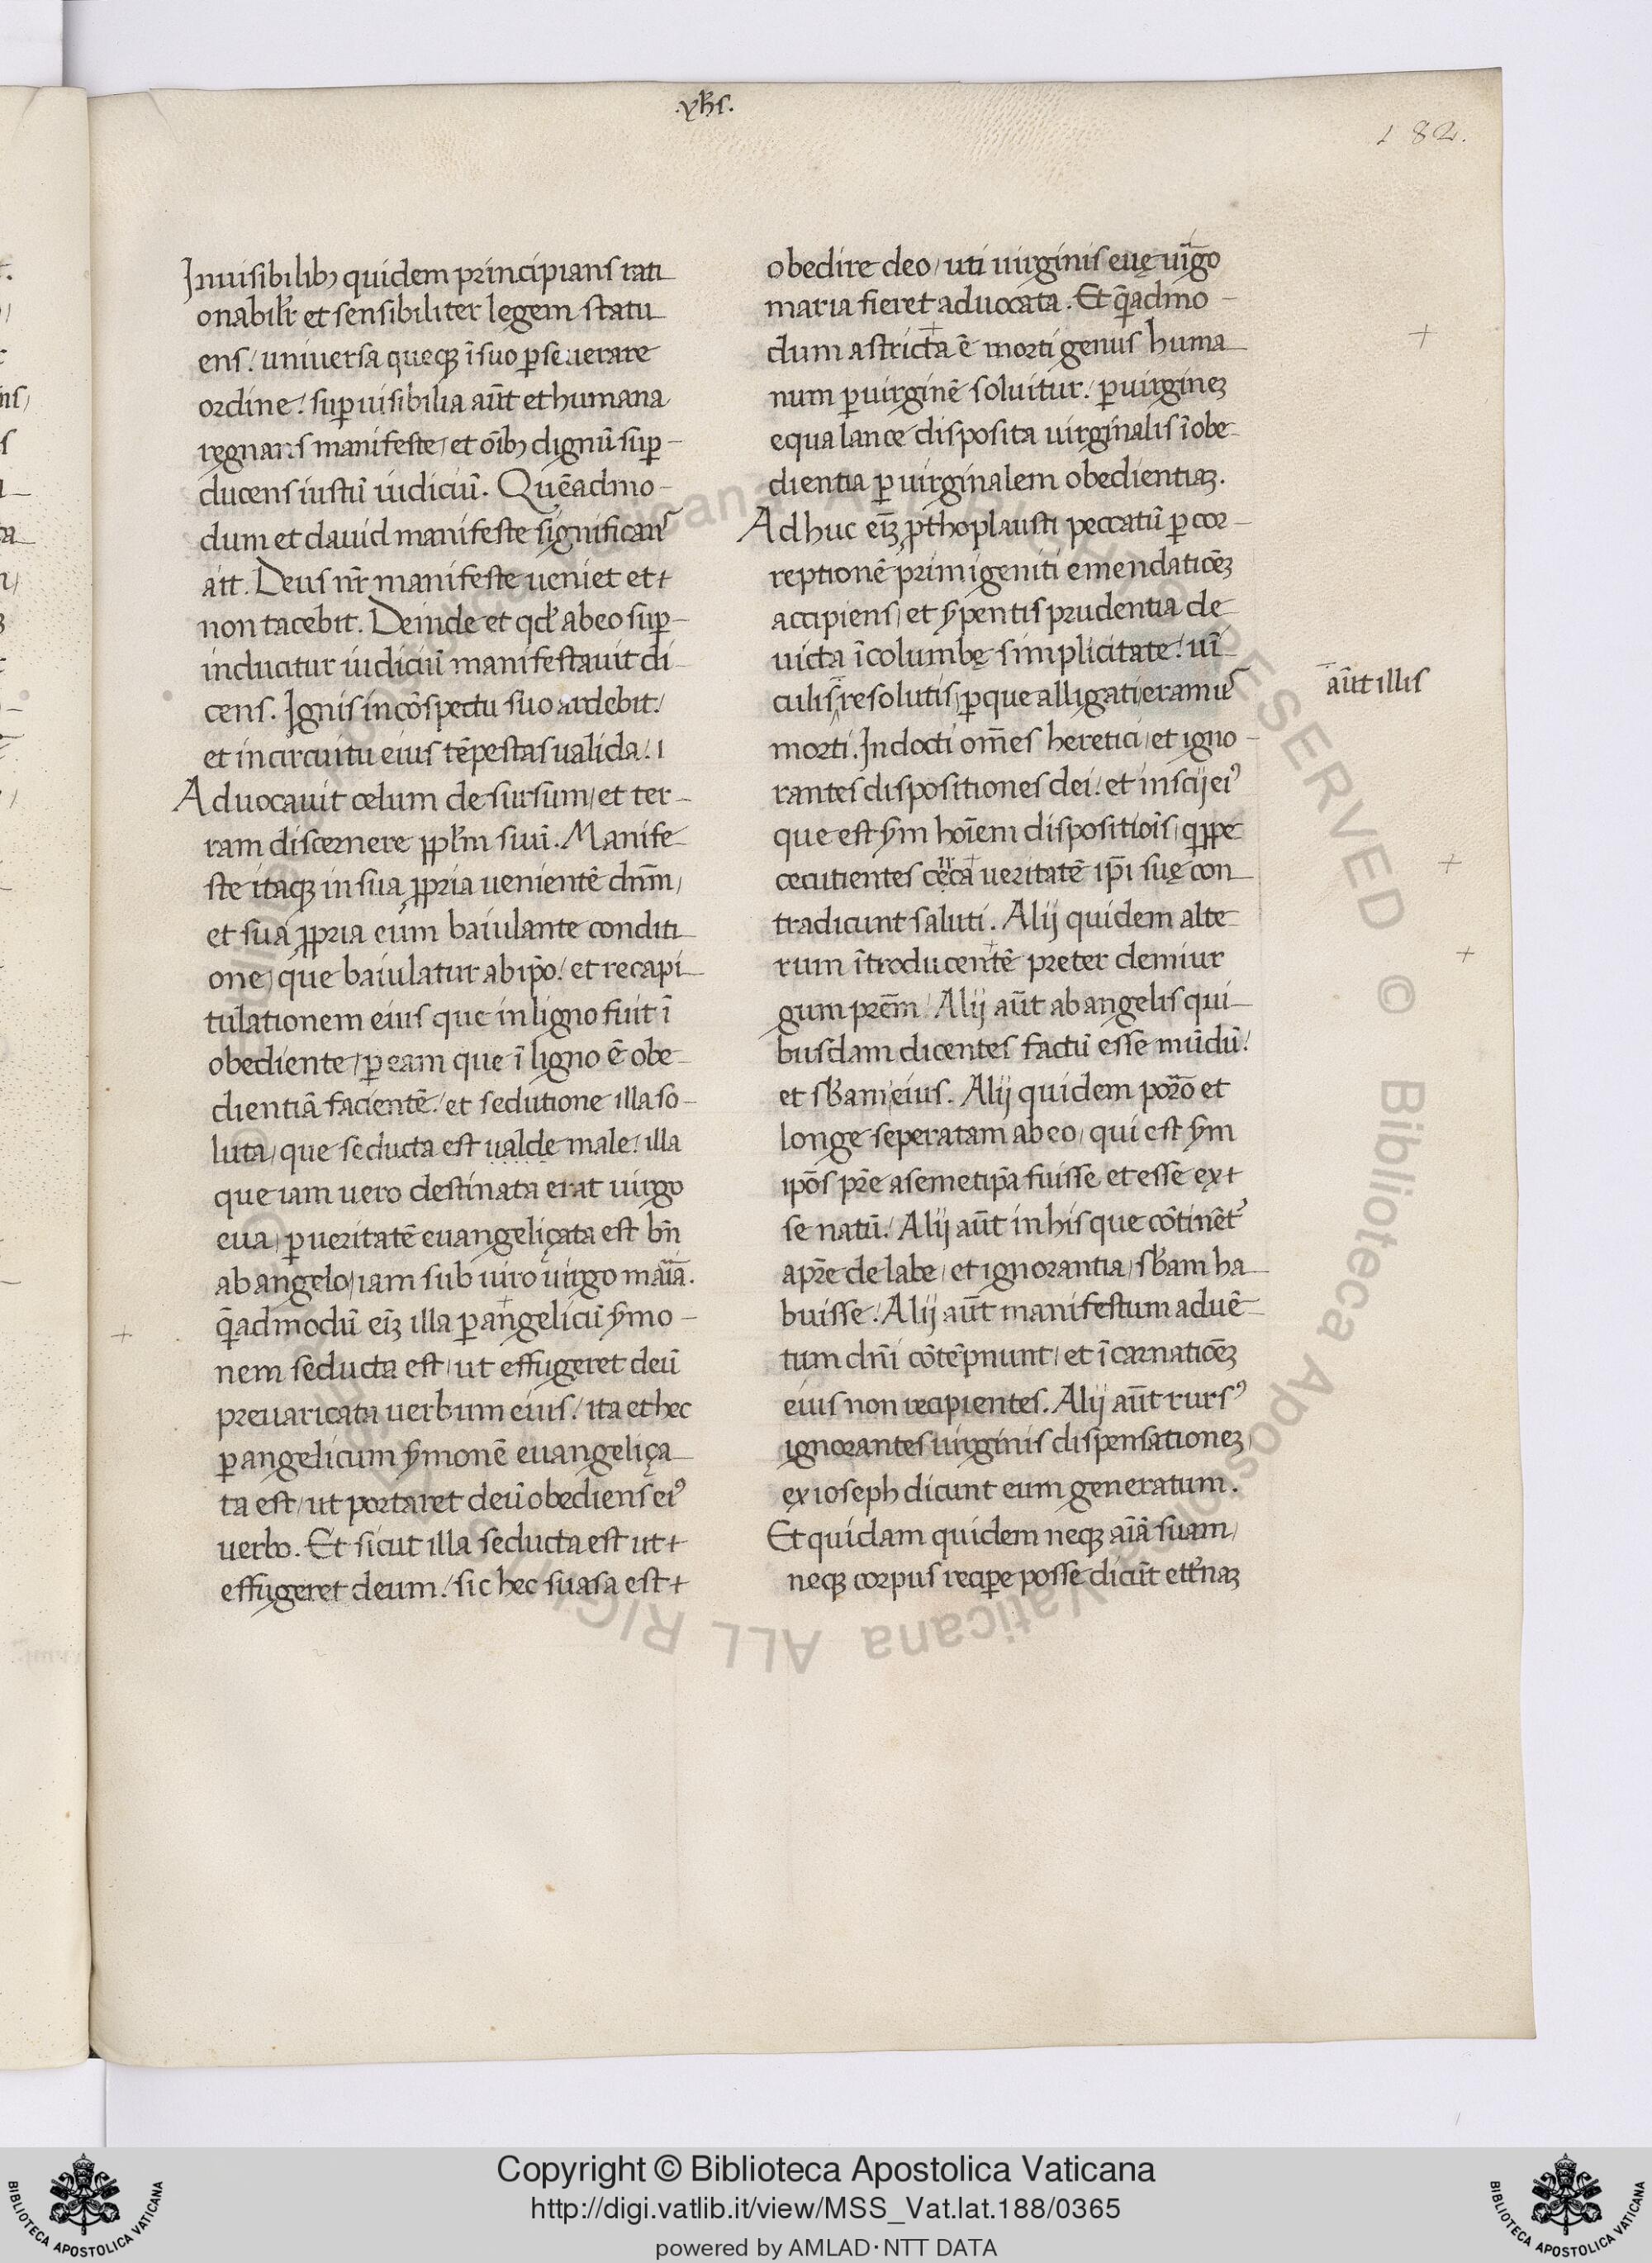 .yħs.
182.
Jnuisibilibꝫ quidem principians rati
onabilr̃ et sensibiliter legem statu
ens / uniuersa queqꝫ ĩ suo ꝑseuerare
ordine / suꝑ uisibilia aũt et humana
regnans manifeste / et oĩbꝫ dignũ suꝑ
ducens iustũ iudiciũ. Quẽadmo
dum et dauid manifeste significans
ait. Deus nr̃ manifeste ueniet et
non tacebit. Deinde et qđ ab eo suꝑ
inducitur iudiciũ manifestauit di
cens. Ignis in cõspectu suo ardebit /
et in circuitu eius tẽpestas ualida /
Aduocauit celum de sursum / et ter
ram discernere ppl̃m suũ. Manife
ste itaqꝫ in sua ꝓpria uenientẽ dñm /
et sua ꝓpria eum baiulante conditi
one / que baiulatur ab ip̃o / et recapi
tulationem eius que in ligno fuit ĩ
obediente / ꝑ eam que ĩ ligno ẽ obe
dientiã facientẽ / et sedutione illa so
luta / que seducta est ualde male / illa
que iam uero destinata erat uirgo
eua / ꝑ ueritatẽ euangeliçata est bñ
ab angelo / iam sub uiro uirgo maĩa.
q̃admodũ eĩꝫ illa ꝑ angelicũ ẜmo
nem seducta est / ut effugeret deũ
preuaricata uerbum eius / ita et hec
ꝑ angelicum ẜmonẽ euangeliça
ta est / ut portaret deũ obediens eiꝰ
uerbo. Et sicut illa seducta est ut
effugeret deum / sic hec suasa est
obedire deo / uti uirginis euę uĩgo
maria fieret aduocata. Et q̃admo
dum astricta ẽ morti genus huma
num ꝑ uirginẽ soluitur / ꝑ uirgineꝫ
equa lance disposita uirginalis ĩobe
dientia ꝑ uirginalem obedientiaꝫ.
Adhuc eĩꝫ p̃thoplausti peccatũ ꝑ cor
reptionẽ primigeniti emendaticẽꝫ
accipiens / et ẜpentis prudentia de
uicta ĩ columbę simplicitate / uĩ
culis resolutis / ꝑ que alligati eramus
aũt illis
morti. Indocti om̃es heretici / et igno
rantes dispositiones dei / et inscij eiꝰ
que est ẜm hoĩem dispositiõis / qꝑpe
cecutientes cęca ueritatẽ ip̃i suę con
tradicunt saluti. Alij quidem alte
rum ĩtroducentẽ preter demiur
gum prẽm / Alij aũt ab angelis qui
busdam dicentes factũ esse mũdũ /
et sƀam eius. Alij quidem porõ et
longe seperatam ab eo / qui est ẜm
ipõs pr̃e a semetip̃a fuisse et esse ex
se natũ / Alij aũt in his que cõtinẽtᷣ
a pr̃e de labe / et ignorantia / sƀam ha
buisse / Alij aũt manifestum aduẽ
tum dñi cõtẽpnunt / et ĩcarnaticẽꝫ
eius non recipientes. Alij aũt rursꝰ
ignorantes uirginis dispensationeꝫ /
ex ioseph dicunt eum generatum.
Et quidam quidem neqꝫ aĩã suam /
neqꝫ corpus reciꝑe posse dicũt etr̃naꝫ
Copyright © Biblioteca Apostolica Vaticana
http://digi.vatlib.it/view/MSS_Vat.lat.188/0365
powered by AMLAD·NTT DATA
BIBLIOTECA APOSTOLICA VATICANA
BIBLIOTECA APOSTOLICA VATICANA